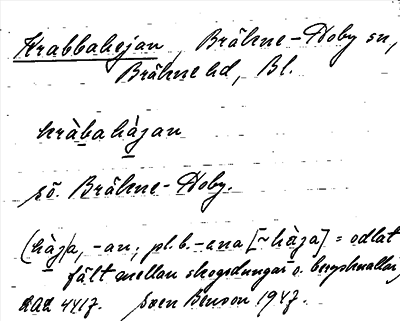 Krabbahejan, Bräkne-Hoby sn,
Bräkne hd, Bl.
kràbahàjan
sö. Bräkne-Hoby.
(hàja, -an; pl. b. -ena [~hàja] = odlat
fält mellan skogsdungar o. bergknallar,
DAL 4417. Sven Benson 1947.